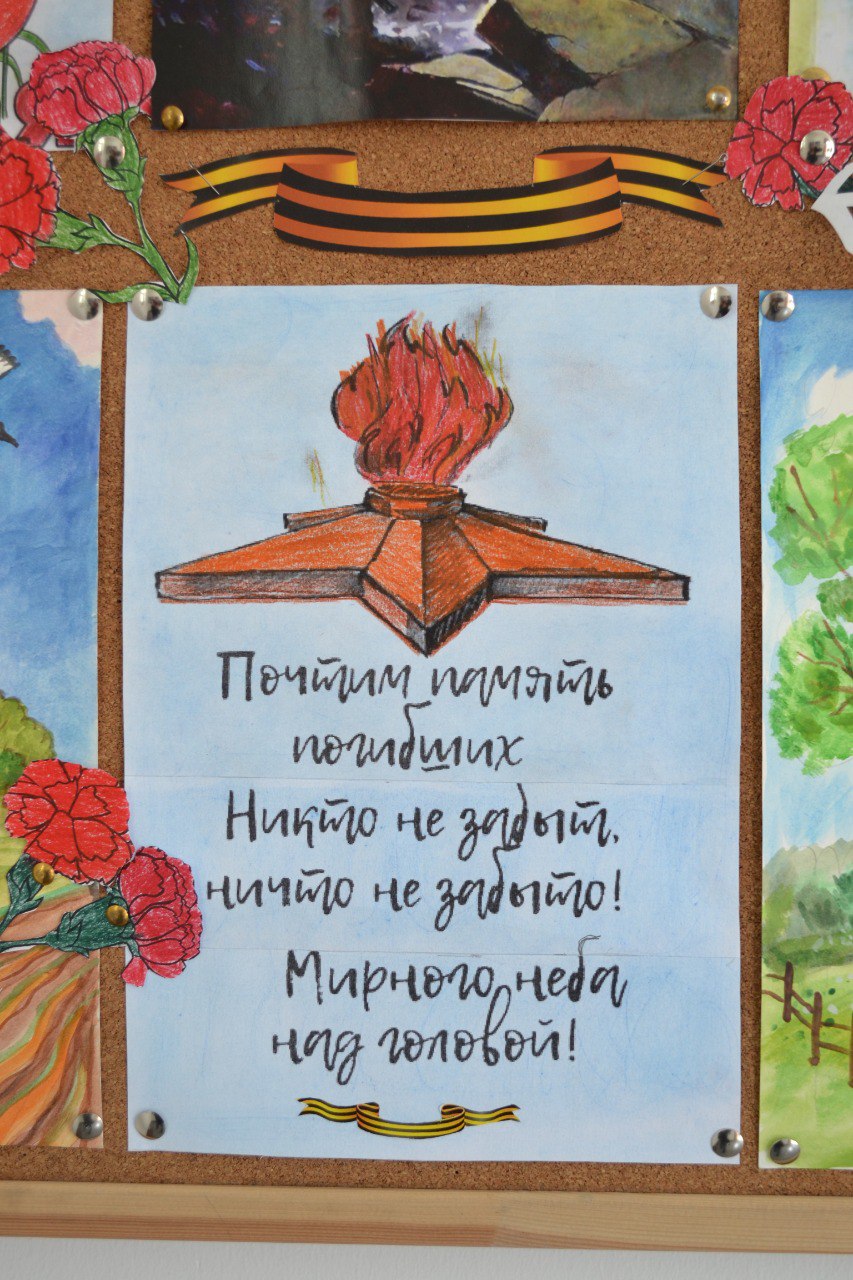 Почтим память
погибших
Никто не забыт,
ничто не забыто!
Мирного неба
над головой!